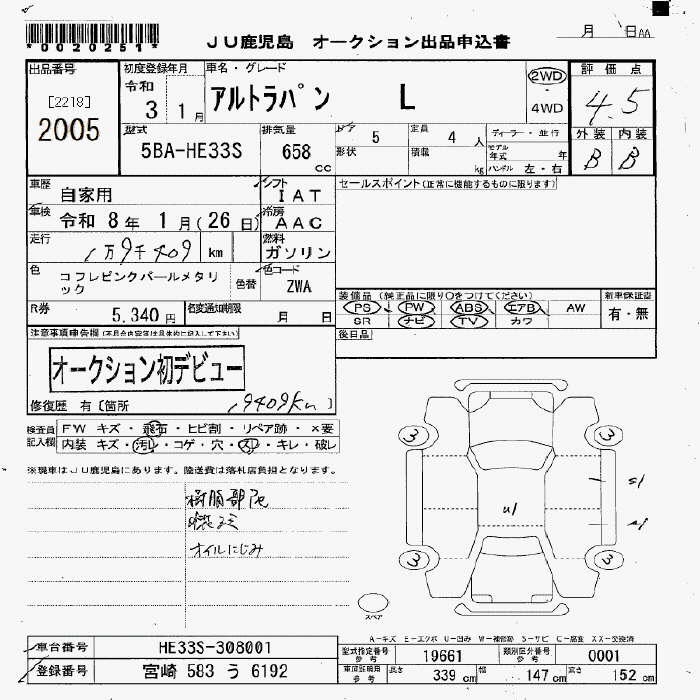 *0020251*
JU鹿児島 オークション出品申込書
月 日AA
出品番号
[2218]
2005
初度登録年月
令和
3 1月
車名・グレード
アルトラパン L
2WD
・
4WD
評価点
4.5
型式
5BA-HE33S
排気量
658
cc
ドア 5
定員 4 人
形状
積載 kg
ディーラー・並行
モデル年式 年
ハンドル 左・右
外装 内装
B B
車歴 自家用
シフト IAT
車検 令和 8年 1月(26日)
冷房 AAC
走行 1万9千409 km
燃料 ガソリン
色 コフレピンクパールメタリック
色替
色コード ZWA
R券 5,340円
名変通知期限 月 日
セールスポイント(正常に機能するものに限ります)
装備品(純正品に限り○をつけてください)
PS PW ABS エアB AW
SR ナビ TV カワ
新車保証書
有・無
後日品
注意事項申告欄(不具合内容等は具体的に記入して下さい)
オークション初デビュー
修復歴 有〔箇所 19409km 〕
検査員記入欄
FW キズ・飛石・ヒビ割・リペア跡・×要
内装 キズ・汚れ・コゲ・穴・スレ・キレ・破レ
※現車はJU鹿児島にあります。陸送費は落札店負担となります。
樹脂部
オイルにじみ
3 3
U1
3 3
スペア
A-キズ E-エクボ U-凹み W-補修跡 S-サビ C-腐食 XX-交換済
車台番号 HE33S-308001
登録番号 宮崎 583 う 6192
型式指定番号 参考 19661
類別区分番号 参考 0001
車庫証明用 参考
長さ 339 cm
幅 147 cm
高さ 152 cm